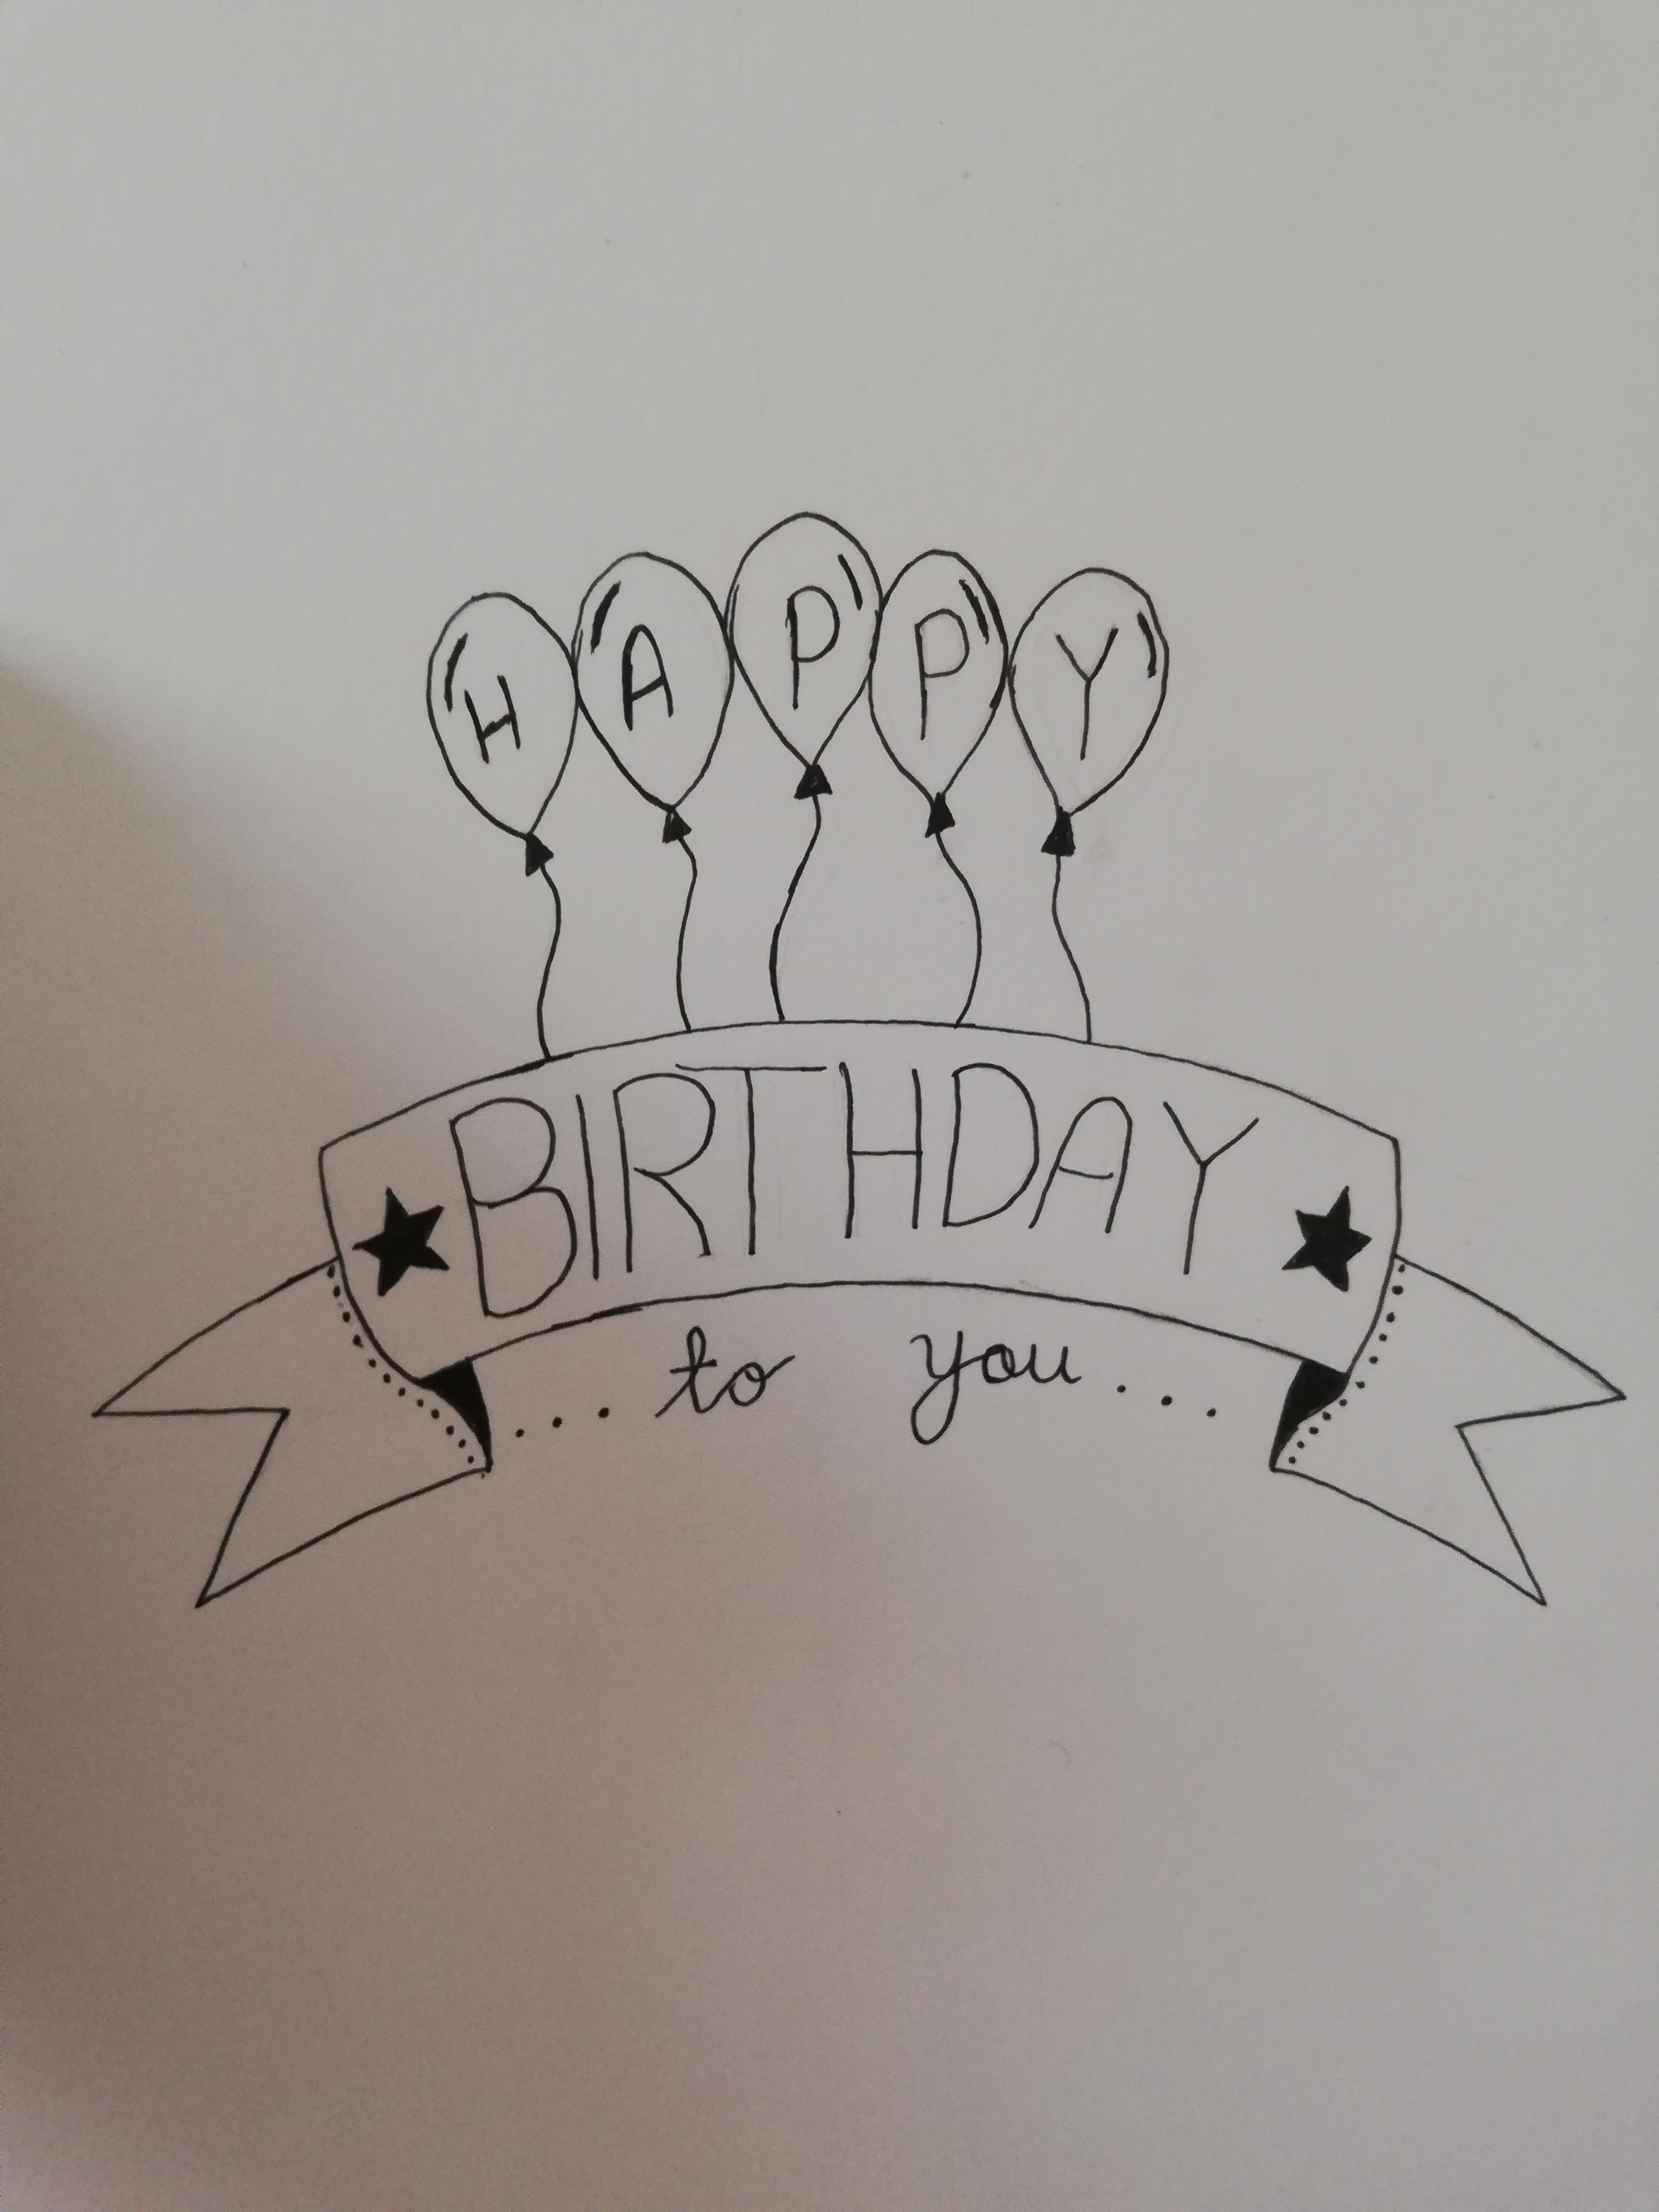 HAPPY
BIRTHDAY
... to you ...